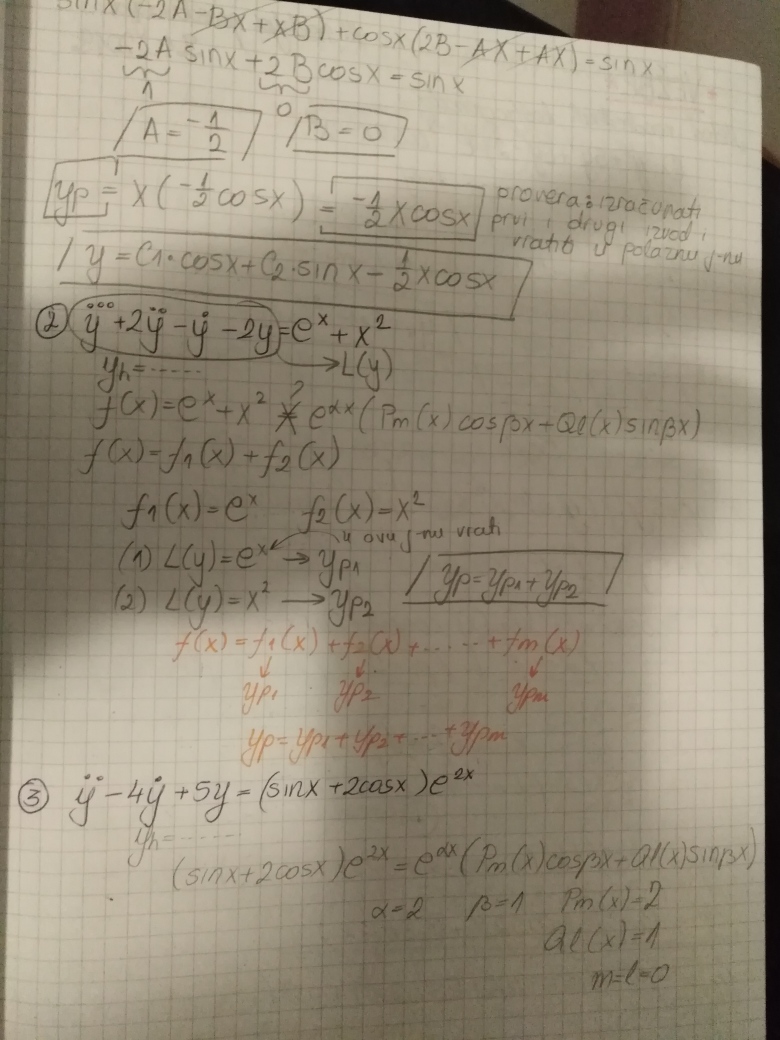 sinx(-2A-BX+XB)+cosx(2B-AX+AX)=sinx
-2A sinx+2Bcosx=sinx
1 0
A=-1/2 B=0
yp=x(-1/2cosx)=-1/2xcosx
provera: izračunati
prvi i drugi izvod i
vratiti u polaznu j-nu
y=C1·cosx+C2·sinx-1/2xcosx
② y⃛+2ÿ-ẏ-2y=e^x+x^2
yh=...... →L(y)
?
f(x)=e^x+x^2 ≠ e^αx(Pm(x)cosβx+Ql(x)sinβx)
f(x)=f1(x)+f2(x)
f1(x)=e^x f2(x)=x^2
u ovu j-nu vrati
(1) L(y)=e^x→yp1
(2) L(y)=x^2→yp2 yp=yp1+yp2
f(x)=f1(x)+f2(x)+......+fm(x)
↓ ↓ ↓
yp1 yp2 ypm
yp=yp1+yp2+...+ypm
③ ÿ-4ẏ+5y=(sinx+2cosx)e^2x
yh=........
(sinx+2cosx)e^2x=e^αx(Pm(x)cosβx+Ql(x)sinβx)
α=2 β=1 Pm(x)=2
Ql(x)=1
m=l=0